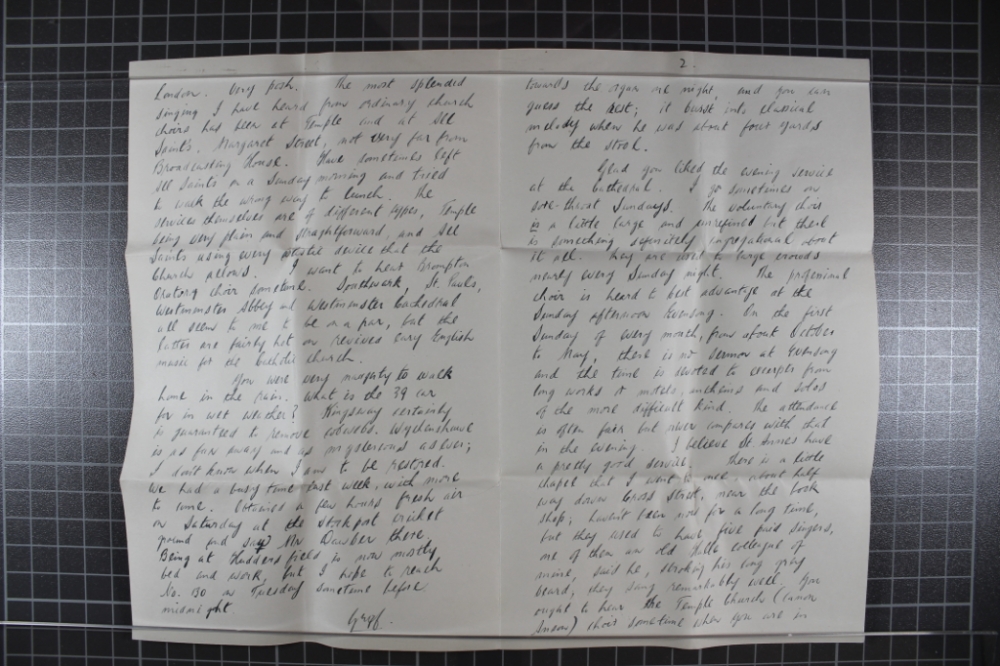 2.
towards the organ one night, and you can
guess the rest; it burst into classical
melody when he was about four yards
from the stool.
Glad you liked the evening service
at the Cathedral. I go sometimes on
sore-throat Sundays. The voluntary choir
is a little large and unrefined but there
is something definitely congregational about
it all. They are used to large crowds
nearly every Sunday night. The professional
choir is heard to best advantage at the
Sunday afternoon Evensong. On the first
Sunday of every month, from about October
to May, there is no sermon at Evensong
and the time is devoted to excerpts from
long works or motets, anthems and solos
of the more difficult kind. The attendance
is often fair but never compares with that
in the evening. I believe St Annes have
a pretty good service. There is a little
chapel that I went to once about half
way down Cross Street, near the book
shop; haven't been now for a long time,
but they used to have five paid singers,
one of them an old Hallé colleague of
mine, said he, stroking his long gray
beard, they sang remarkably well. You
ought to hear the Temple Church (
) choir sometime when you are in
London. Very posh. The most splendid
singing I have heard from ordinary church
choirs has been at Temple and at All
Saints, Margaret Street, not very far from
Broadcasting House. Have sometimes left
All Saints on a Sunday morning and tried
to walk the wrong way to lunch. The
services themselves are of different types, Temple
being very plain and straightforward, and All
Saints using every artistic device that the
Church allows. I want to hear Brompton
Oratory choir sometime. Southwark, St. Pauls,
Westminster Abbey and Westminster Cathedral
all seem to me to be on a par, but the
latter are fairly hot on revived early English
music for the Catholic church.
You were very naughty to walk
home in the rain. What is the 39 car
for in wet weather? Kingsway certainly
is guaranteed to remove cobwebs. Wythenshawe
is as far away and as mysterious as ever;
I don't know when I am to be restored.
We had a busy time last week, with more
to come. Obtained a few hours fresh air
on Saturday at the Stockport cricket
ground and saw Mr Dawber there.
Being at Huddersfield is now mostly
bed and work, but I hope to reach
No. 130 on Tuesday sometime before
midnight.
Geof.